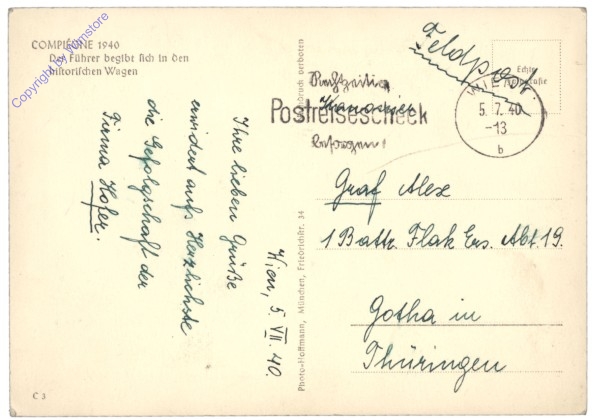 Copyright by wiimstore
COMPIÈGNE 1940
Der Führer begibt sich in den
historischen Wagen
Ihre lieben Grüße
erwidert auf's Herzlichste
die Gefolgschaft der
Firma Hofer.
Wien, 5. VII. 40.
C 3
Photo-Hoffmann, München, Friedrichstr. 34
Nachdruck verboten
Feldpost.
Echte
Photografie
Rechtzeitig
Postreisescheck
besorgen!
WIEN
5. 7. 40
-13
b
Graf Alex
1 Battr. Flak Ers. Abt. 19.
Gotha in
Thüringen